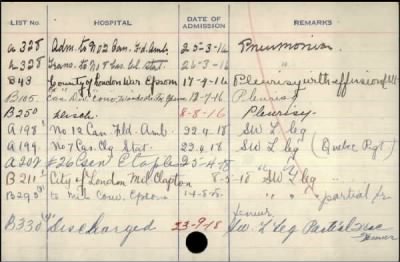 LIST NO. HOSPITAL DATE OF ADMISSION REMARKS
A 325 Adm. to No 2 Can. Fd. Amb. 25-3-16 Pneumonia
A 328 Trans. to No 8 Cas. Cl. Stat. 26-3-16 "
B 43 County of London War Epsom 17-4-16 Pleurisy with effusion
B 105 Can. Con. Woodcote Pk. Epsom 18-7-16 Pleurisy
B 250 Disch. 8-8-16 Pleurisy
A 198 No 12 Can. Fld. Amb. 22.4.18 SW L leg
A 199 No 7 Cas. Clg. Stat. 22.4.18 SW L leg (Quebec Rgt)
A 202 #26 Gen Etaples 25-4-18
B 211 City of London Mil. Clapton 8-5-18 "SW L leg
B 293 to Mil. Conv. Epsom 14-8-18 " " " partial fr
femur
B 330 Discharged 23-9-18 Sw. L Leg Partial Frac
Femur